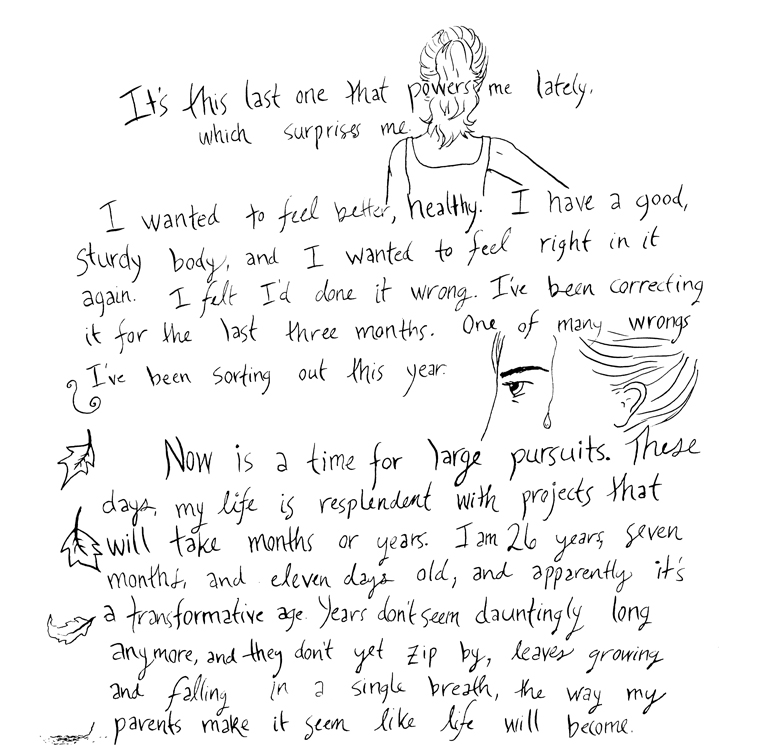 It's this last one that powers me lately,
which surprises me.
I wanted to feel better, healthy. I have a good,
sturdy body, and I wanted to feel right in it
again. I felt I'd done it wrong. I've been correcting
it for the last three months. One of many wrongs
I've been sorting out this year.
Now is a time for large pursuits. These
days, my life is resplendent with projects that
will take months or years. I am 26 years, seven
months, and eleven days old, and apparently it's
a transformative age. Years don't seem dauntingly long
anymore, and they don't yet zip by, leaves growing
and falling in a single breath, the way my
parents make it seem like life will become.